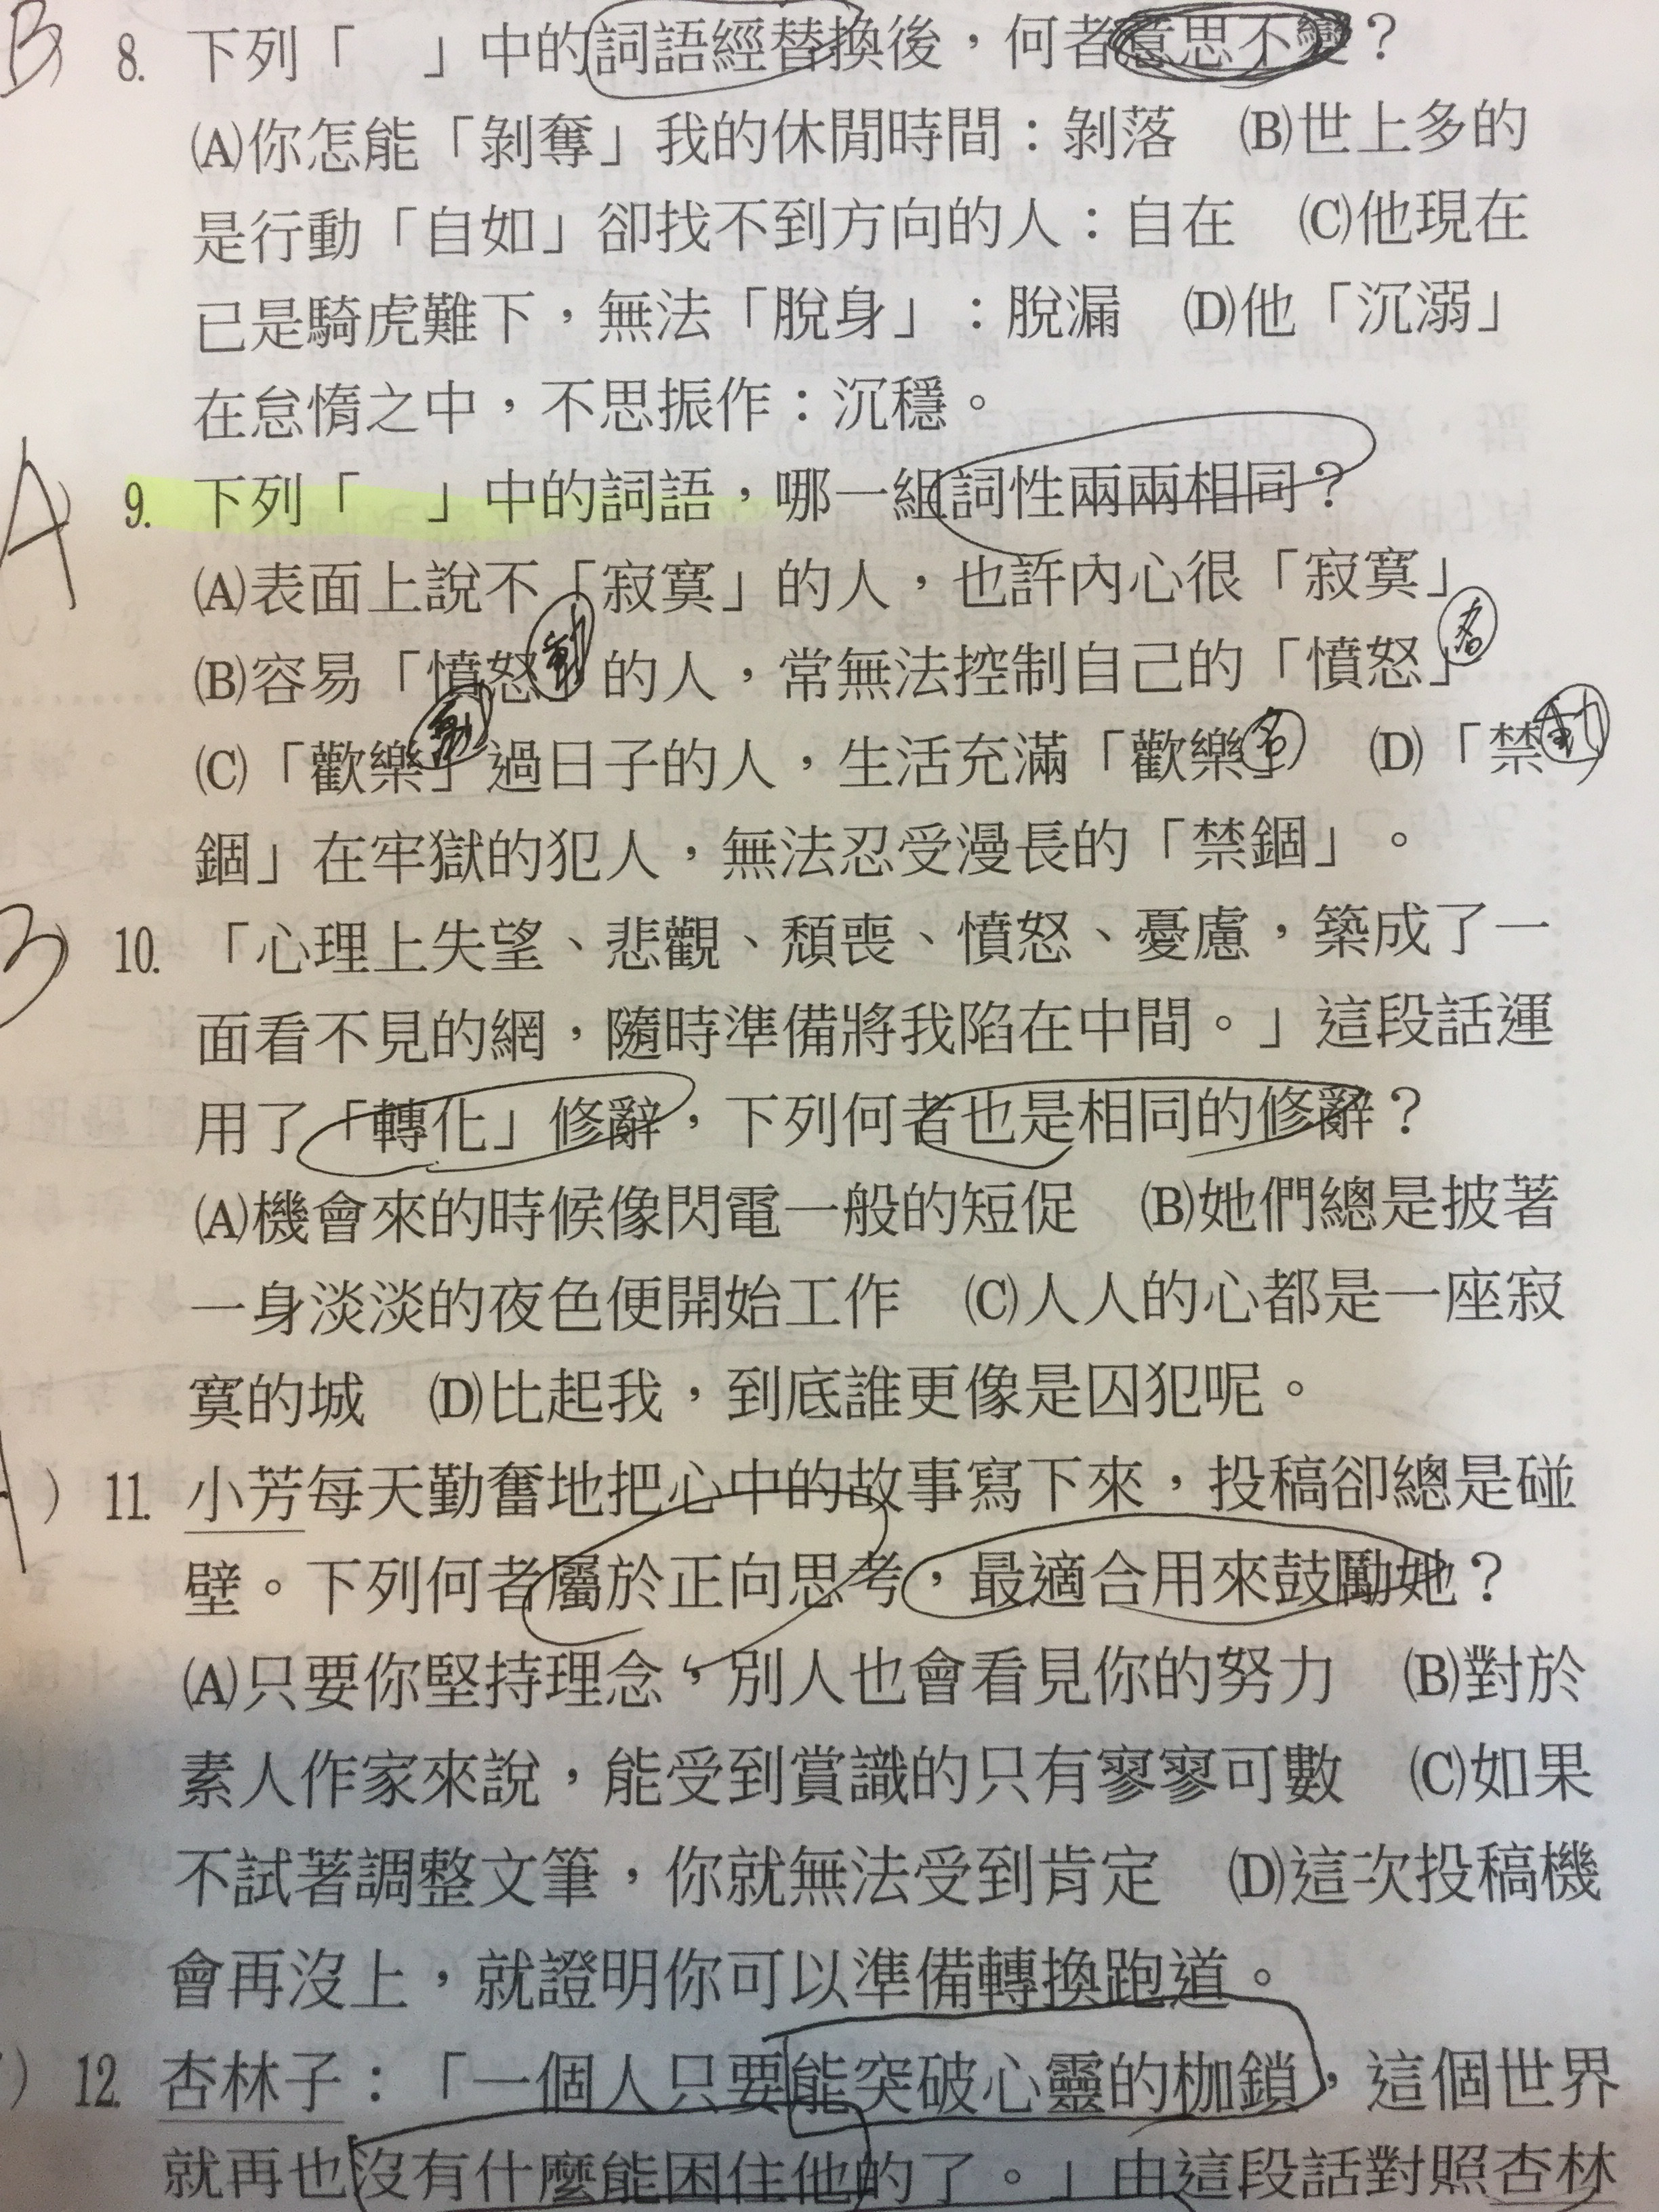 B) 8. 下列「　」中的詞語經替換後，何者意思不變？
(A)你怎能「剝奪」我的休閒時間：剝落　(B)世上多的
是行動「自如」卻找不到方向的人：自在　(C)他現在
已是騎虎難下，無法「脫身」：脫漏　(D)他「沉溺」
在怠惰之中，不思振作：沉穩。
A) 9. 下列「　」中的詞語，哪一組詞性兩兩相同？
(A)表面上說不「寂寞」的人，也許內心很「寂寞」
(B)容易「憤怒」動的人，常無法控制自己的「憤怒」名
(C)「歡樂」過日子的人，生活充滿「歡樂」名　(D)「禁動
錮」在牢獄的犯人，無法忍受漫長的「禁錮」。
) 10. 「心理上失望、悲觀、頹喪、憤怒、憂慮，築成了一
面看不見的網，隨時準備將我陷在中間。」這段話運
用了「轉化」修辭，下列何者也是相同的修辭？
(A)機會來的時候像閃電一般的短促　(B)她們總是披著
一身淡淡的夜色便開始工作　(C)人人的心都是一座寂
寞的城　(D)比起我，到底誰更像是囚犯呢。
) 11. 小芳每天勤奮地把心中的故事寫下來，投稿卻總是碰
壁。下列何者屬於正向思考，最適合用來鼓勵她？
(A)只要你堅持理念，別人也會看見你的努力　(B)對於
素人作家來說，能受到賞識的只有寥寥可數　(C)如果
不試著調整文筆，你就無法受到肯定　(D)這次投稿機
會再沒上，就證明你可以準備轉換跑道。
) 12. 杏林子：「一個人只要能突破心靈的枷鎖，這個世界
就再也沒有什麼能困住他的了。」由這段話對照杏林